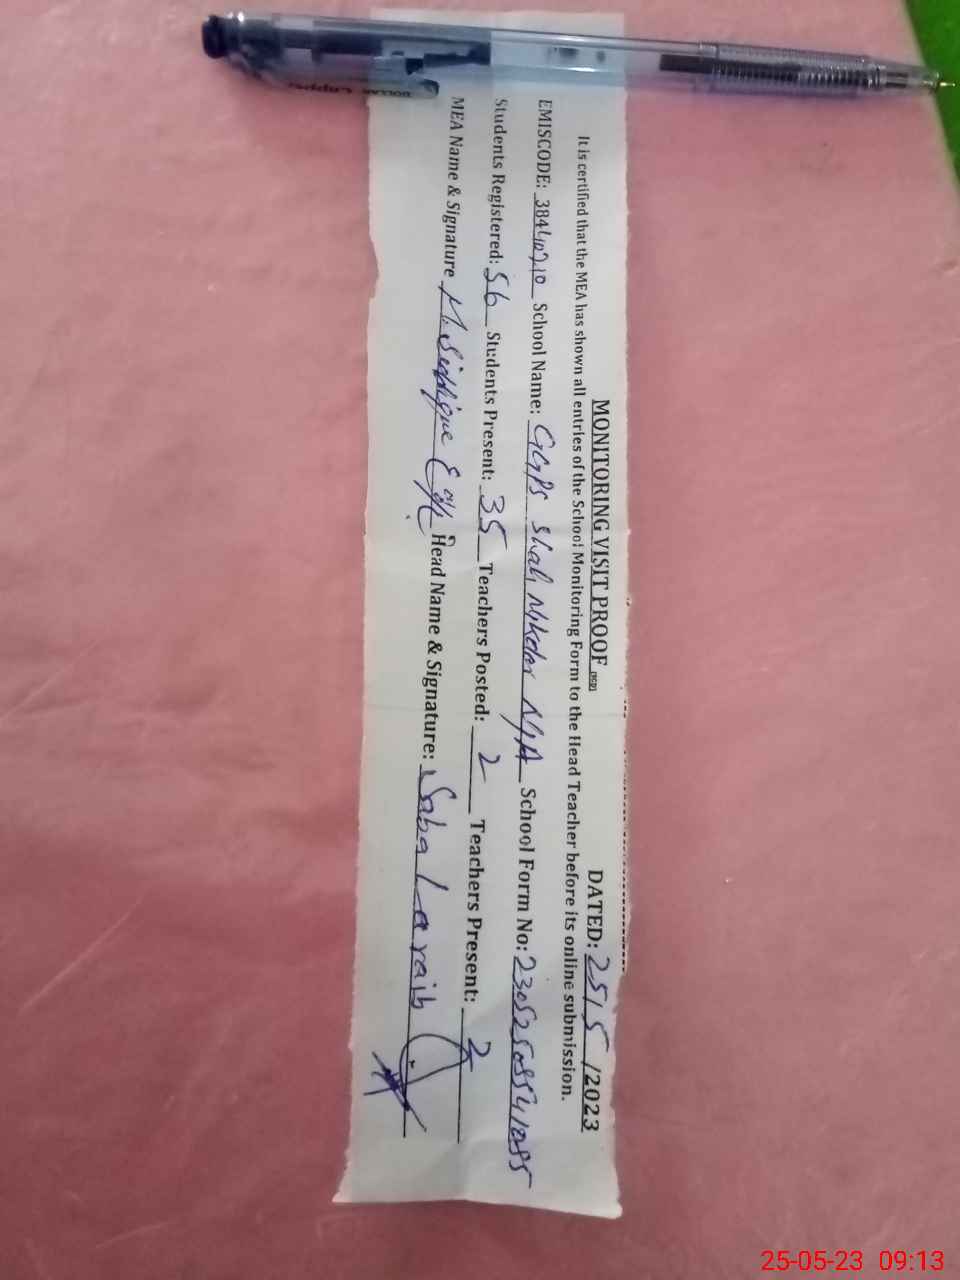 MONITORING VISIT PROOF DATED: 25/5/2023
It is certified that the MEA has shown all entries of the School Monitoring Form to the Head Teacher before its online submission.
EMISCODE: 38440210 School Name: GGPS Shah School Form No:
Students Registered: 56 Students Present: 35 Teachers Posted: 2 Teachers Present: 2
MEA Name & Signature M. Siddique Head Name & Signature: Saba Laraib
DOLLAR Clipper
25-05-23 09:13